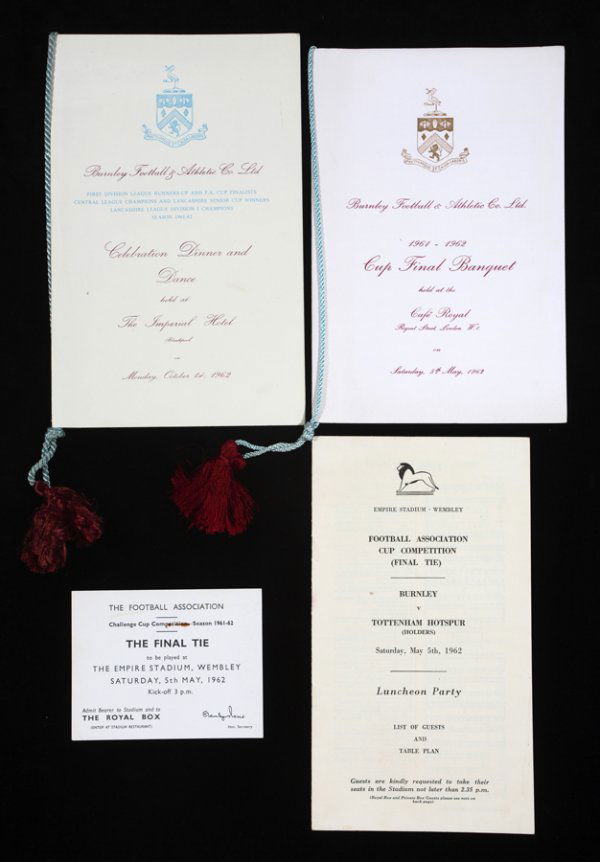 Burnley Football & Athletic Co. Ltd
FIRST DIVISION LEAGUE RUNNERS-UP AND F.A. CUP FINALISTS
CENTRAL LEAGUE CHAMPIONS AND LANCASHIRE SENIOR CUP WINNERS
LANCASHIRE LEAGUE DIVISION I CHAMPIONS
SEASON 1961-62
Celebration Dinner and
Dance
held at
The Imperial Hotel
Blackpool
on
Monday, October 1st, 1962
Burnley Football & Athletic Co. Ltd.
1961 - 1962
Cup Final Banquet
held at the
Café Royal
Regent Street, London, W.1
on
Saturday, 5th May, 1962
EMPIRE STADIUM · WEMBLEY
FOOTBALL ASSOCIATION
CUP COMPETITION
(FINAL TIE)
BURNLEY
v
TOTTENHAM HOTSPUR
(HOLDERS)
Saturday, May 5th, 1962
Luncheon Party
LIST OF GUESTS
AND
TABLE PLAN
Guests are kindly requested to take their
seats in the Stadium not later than 2.35 p.m.
(Royal Box and Private Box Guests please see note on
back page)
THE FOOTBALL ASSOCIATION
Challenge Cup Competition Season 1961-62
THE FINAL TIE
to be played at
THE EMPIRE STADIUM, WEMBLEY
SATURDAY, 5TH MAY, 1962
Kick-off 3 p.m.
Admit Bearer to Stadium and to
THE ROYAL BOX
(ENTER AT STADIUM RESTAURANT)
Hon. Secretary